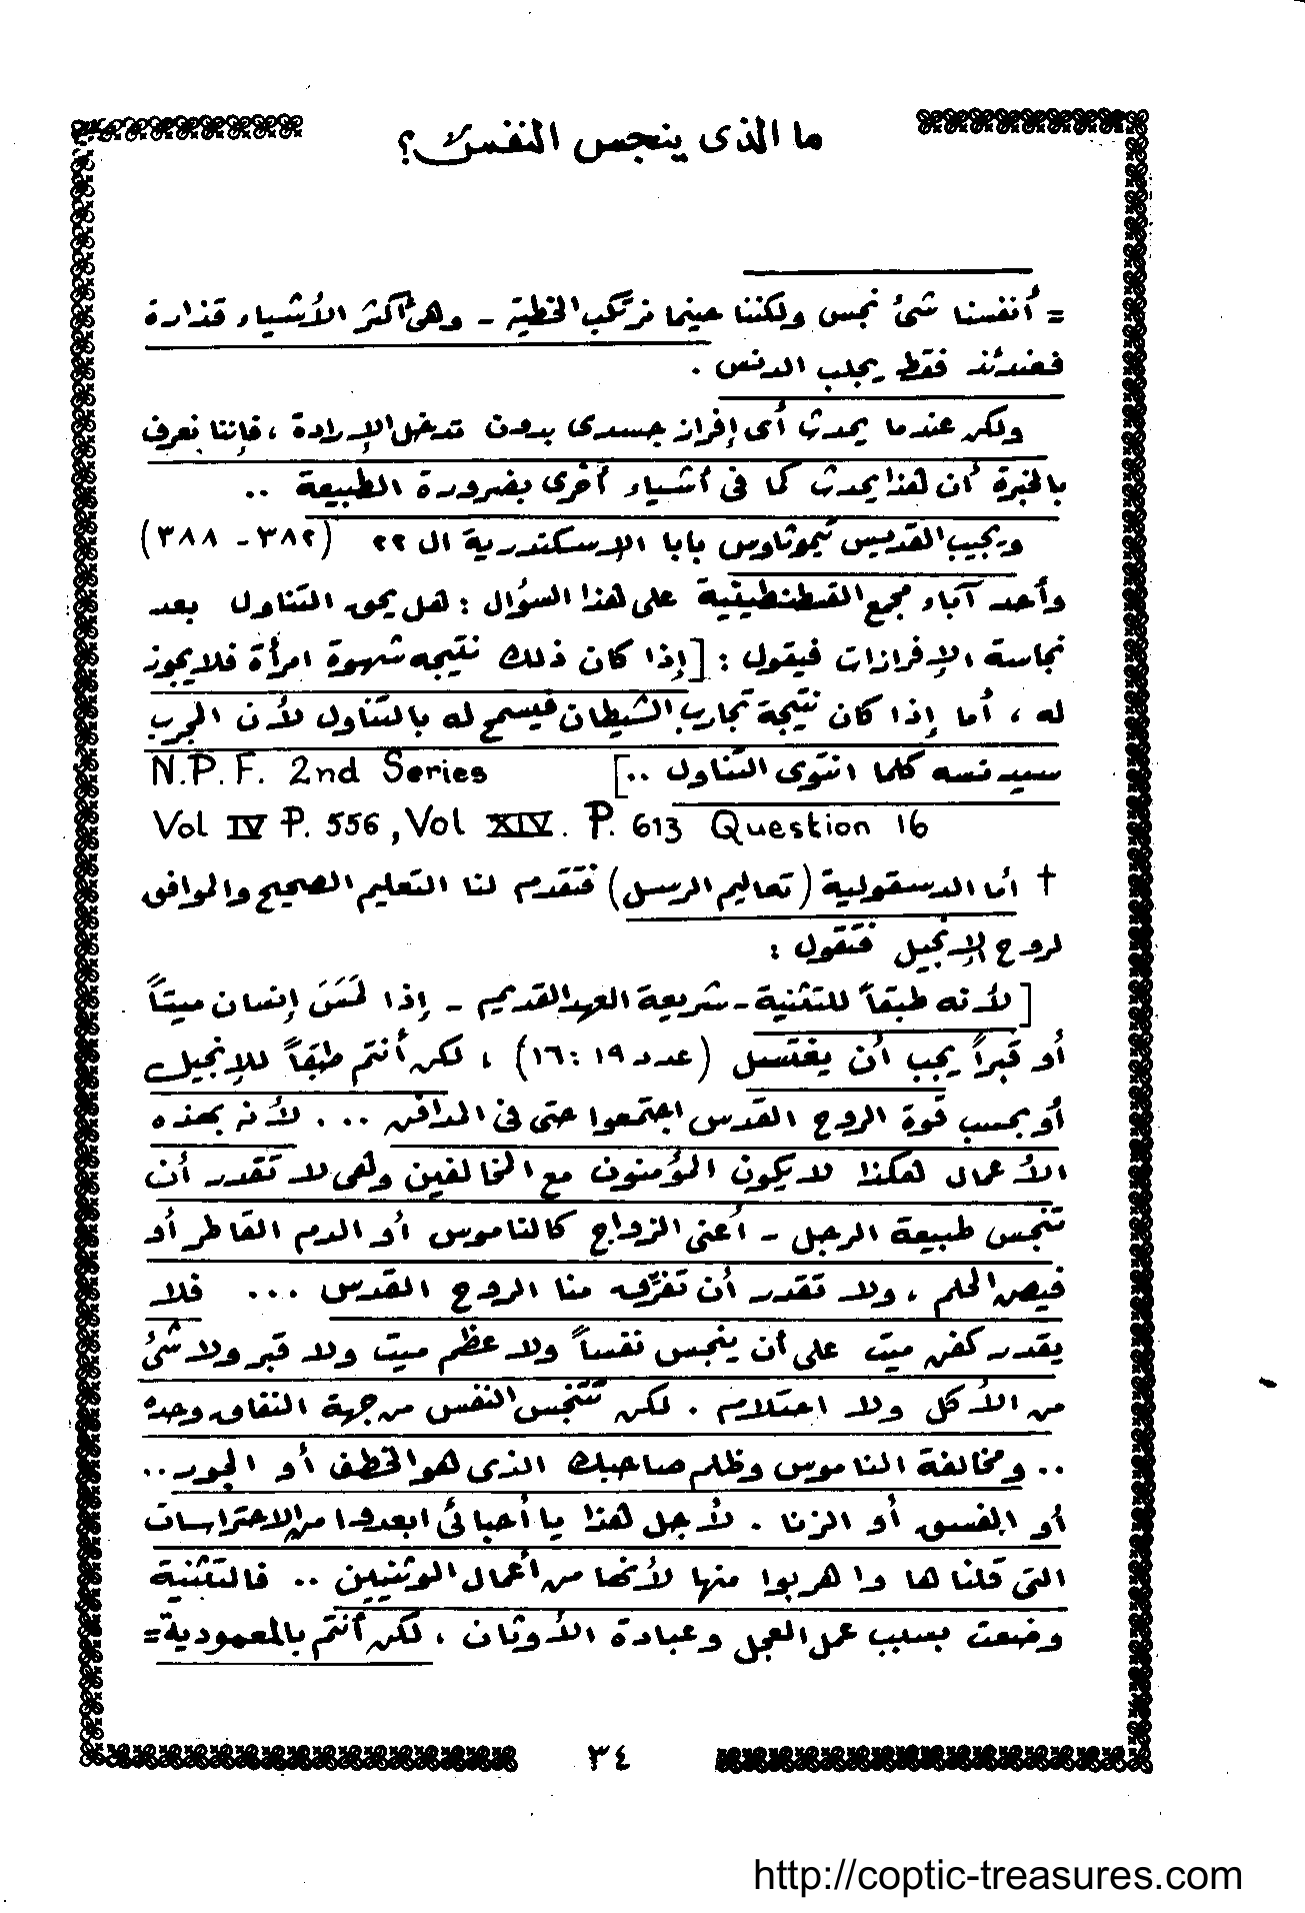 ما الذى ينجس النفس؟
= أنفسنا شئ نجس ولكننا حينما نرتكب الخطية - وهى أكثر الأشياء قذارة
فعندئذ فقط يجلب الدنس .
ولكن عندما يحدث أى إفراز جسدى بدون تدخل الإرادة ، فإننا نعرف
بالخبرة أن هذا يحدث كما فى أشياء أخرى بضرورة الطبيعة ..
ويجيب القديس تيموثاوس بابا الإسكندرية ال ٢٢ (٣٨٢ - ٣٨٨)
وأحد آباء مجمع القسطنطينية على هذا السؤال : هل يحق التناول بعد
نجاسة الإفرازات فيقول : [إذا كان ذلك نتيجه شهوة امرأة فلا يجوز
له ، أما إذا كان نتيجة تجارب الشيطان فيسمح له بالتناول لأن المجرب
سيدنسه كلما انتوى التناول ..] N.P.F. 2nd Series
Vol IV P. 556, Vol XIV. P. 613 Question 16
† أما الدسقولية (تعاليم الرسل) فتقدم لنا التعليم الصحيح والموافق
لروح الإنجيل فتقول :
[لأنه طبقاً للتثنية - شريعة العهد القديم - إذا لمَسَ إنسان ميتاً
أو قبراً يجب أن يغتسل (عدد ١٩ : ١٦) ، لكن أنتم طبقاً للإنجيل
أو بحسب قوة الروح القدس اجتمعوا حتى فى المدافن ... لأنه بهذه
الأعمال هكذا لا يكون المؤمنون مع المخالفين وهى لا تقدر أن
تنجس طبيعة الرجل - أعنى الزواج كالناموس أو الدم القاطر أو
فيض الحلم ، ولا تقدر أن تفرِّق منا الروح القدس ... فلا
يقدر كفن ميت على أن ينجس نفساً ولا عظم ميت ولا قبر ولا شئ
من الأكل ولا احتلام . لكن تتنجس النفس من جهة النفاق وحده
.. ومخالفة الناموس وظلم صاحبك الذى هو الخطف أو الجور ..
أو الفسق أو الزنا . لأجل هذا يا أحبائى ابعدوا من الاحتراسات
التى قلناها واهربوا منها لأنها من أعمال الوثنيين .. فالتثنية
وضعت بسبب عمل العجل وعبادة الأوثان ، لكن أنتم بالمعمودية =
٣٤
http://coptic-treasures.com